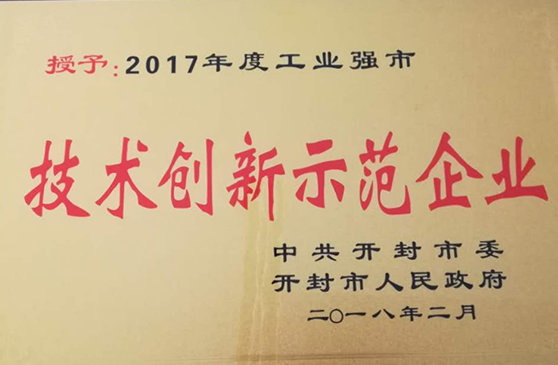 授予:2017年度工业强市
技术创新示范企业
中共开封市委
开封市人民政府
二〇一八年二月